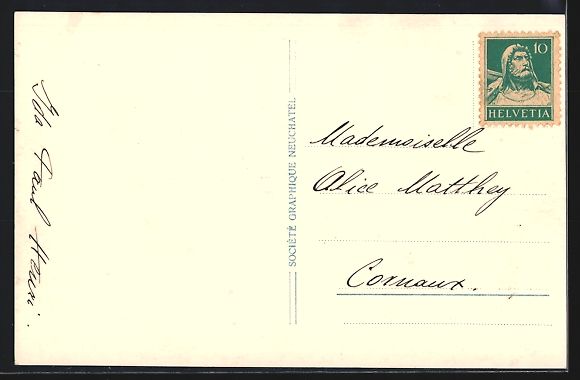 10
HELVETIA
Mademoiselle
Alice Matthey
Cornaux.
SOCIÉTÉ GRAPHIQUE NEUCHATEL
Paul Henri.